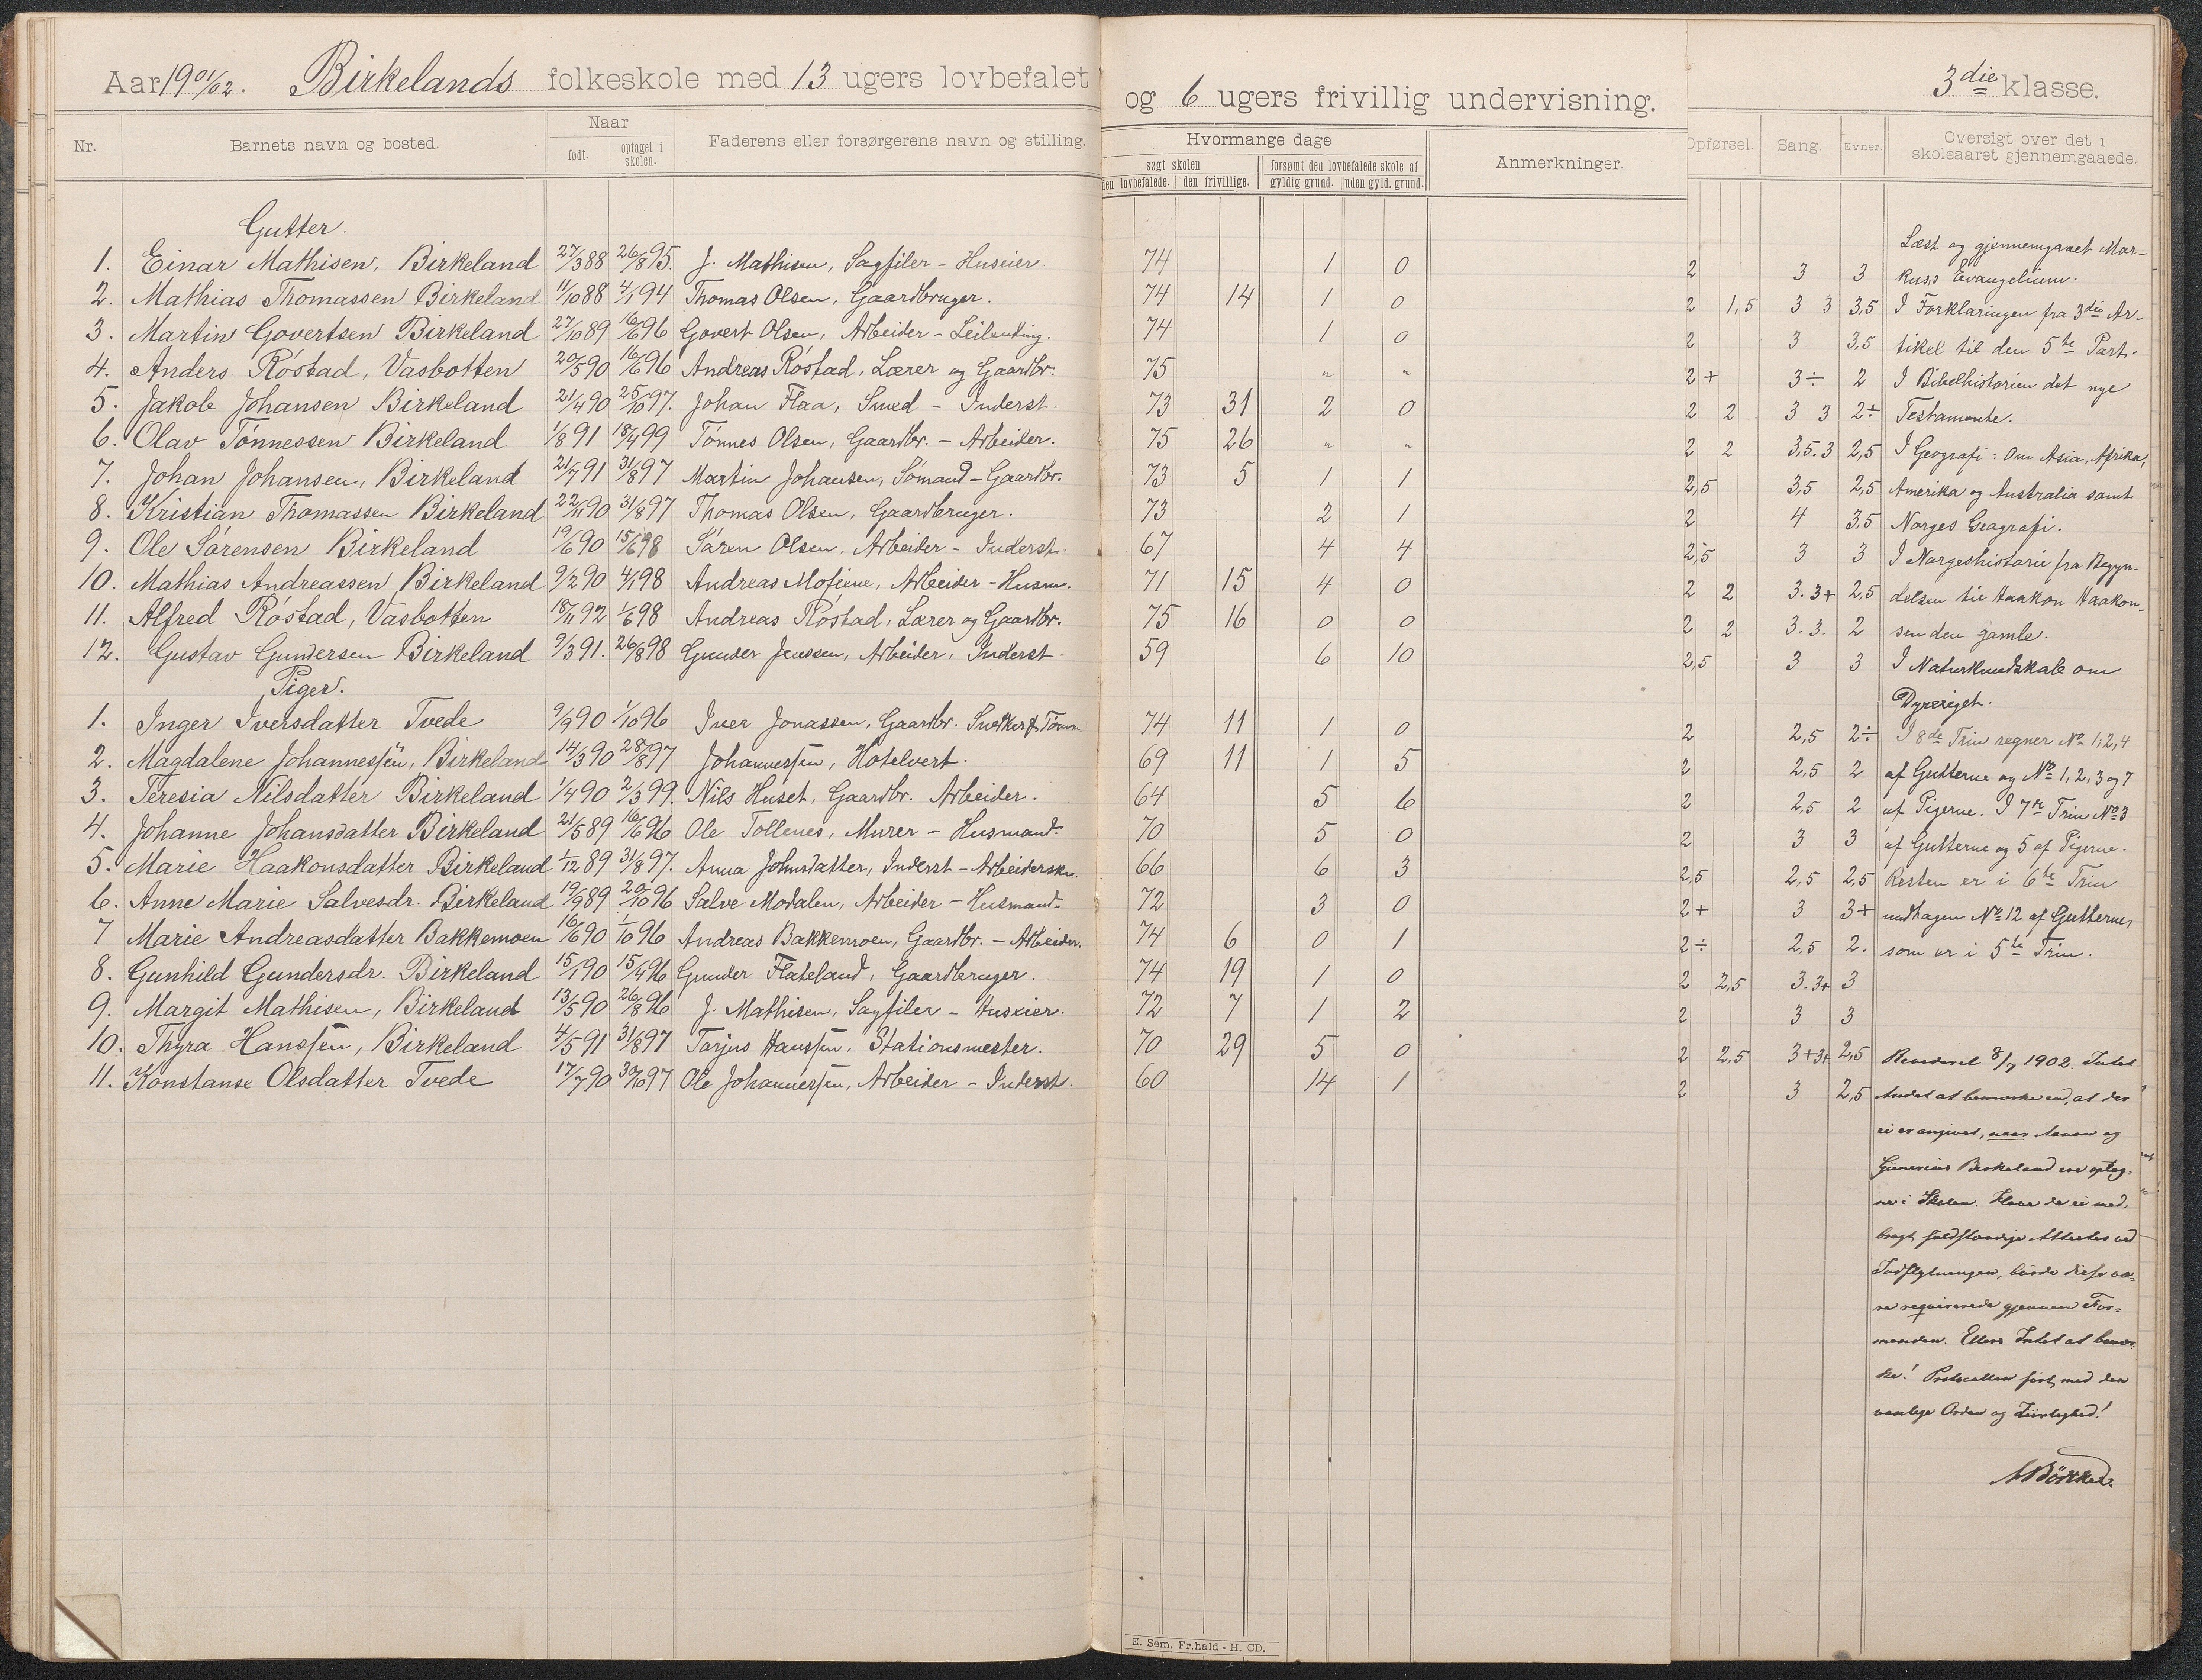 Aar 1901/02. Birkelands folkeskole med 13 ugers lovbefalet og 6 ugers frivillig undervisning. 3die klasse.
Nr. Barnets navn og bosted. Naar født. optaget i skolen. Faderens eller forsørgerens navn og stilling.
Hvormange dage søgt skolen den lovbefalede. den frivillige. forsømt den lovbefalede skole af gyldig grund. uden gyld. grund. Anmerkninger.
Opførsel. Sang. Evner. Oversigt over det i skoleaaret gjennemgaaede.
Gutter.
1. Einar Mathisen, Birkeland 27/3 88 26/8 95. J. Mathisen, Sagfiler - Huseier. 74 1 0 2 3 3
2. Mathias Thomassen Birkeland 11/10 88 4/1 94 Thomas Olsen, Gaardbruger. 74 14 1 0 2 1,5 3 3 3,5
3. Martin Govertsen Birkeland 27/10 89 16/6 96 Govert Olsen, Arbeider - Leilending. 74 1 0 2 3 3,5
4. Anders Róstad, Vasbotten 20/5 90 16/6 96 Andreas Róstad, Lærer og Gaardbr. 75 " " 2+ 3÷ 2
5. Jakob Johansen Birkeland 21/4 90 25/10 97. Johan Flaa, Smed - Inderst. 73 31 2 0 2 2 3 3 2÷
6. Olav Tónnessen Birkeland 1/8 91 18/4 99 Tónnes Olsen, Gaardbr. - Arbeider. 75 26 " " 2 2 3,5. 3 2,5
7. Johan Johansen, Birkeland 21/7 91 31/8 97 Martin Johansen, Sómand - Gaardbr. 73 5 1 1 2,5 3,5 2,5
8. Kristian Thomassen Birkeland 22/11 90 31/8 97 Thomas Olsen, Gaardbruger. 73 2 1 2 4 3,5
9. Ole Sórensen Birkeland 19/6 90 15/6 98 Sóren Olsen, Arbeider - Inderst. 67 4 4 2,5 3 3
10. Mathias Andreassen Birkeland 9/2 90 4/1 98 Andreas Mofiene, Arbeider - Husm. 71 15 4 0 2 2 3. 3+ 2,5
11. Alfred Róstad, Vasbotten 18/11 92 1/6 98 Andreas Róstad, Lærer og Gaardbr. 75 16 0 0 2 2 3. 3. 2
12. Gustav Gundersen Birkeland 9/3 91. 26/8 98 Gunder Jenssen, Arbeider, Inderst 59 6 10 2,5 3 3
Piger.
1. Inger Iversdatter Tvede 9/9 90 1/10 96 Iver Jonassen, Gaardbr. 74 11 1 0 2 2,5 2÷
2. Magdalene Johannesſen, Birkeland 14/3 90 28/8 97 Johannesſen, Hotelvert. 69 11 1 5 2 2,5 2
3. Teresia Nilsdatter Birkeland 1/4 90 2/3 99. Nils Huset, Gaardbr. Arbeider. 64 5 6 2 2,5 2
4. Johanne Johansdatter Birkeland 21/5 89 16/6 96 Ole Tollenes, Murer - Husmand. 70 5 0 2 3 3
5. Marie Haakonsdatter Birkeland 1/12 89 31/8 97. Anna Johnsdatter, Inderst - Arbeiderske. 66 6 3 2,5 2,5 2,5
6. Anne Marie Salvesdr. Birkeland 19/9 89 20/10 96 Salve Modalen, Arbeider - Husmand. 72 3 0 2+ 3 3+
7 Marie Andreasdatter Bakkemoen 16/6 90 1/10 96 Andreas Bakkemoen, Gaardbr. - Arbeider. 74 6 0 1 2÷ 2,5 2.
8. Gunhild Gundersdr. Birkeland 15/1 90 15/4 96 Gunder Flateland, Gaardbruger. 74 19 1 0 2 2,5 3. 3+ 3
9. Margit Mathisen, Birkeland 13/5 90 26/8 96 J. Mathisen, Sagfiler - Huseier. 72 7 1 2 2 3 3
10. Thyra Hansſen, Birkeland 4/5 91 31/8 97 Torjus Hansſen, Stationsmester. 70 29 5 0 2 2,5 3+3+ 2,5
11. Konstanse Olsdatter Tvede 17/7 90 30/10 97 Ole Johannesſen, Arbeider - Inderst. 60 14 1 2 3 2,5
Læst og gjennemgaaet Mar-
kuss Evangelium.
I Forklaringen fra 3die Ar-
tikel til den 5te Part.
I Bibelhistorien det nye
Testamente.
I Geografi: Om Asia, Afrika,
Amerika og Australia samt
Norges Geografi.
I Norgeshistorie fra Begyn-
delsen til Haakon Haakon-
sen den gamle.
I Naturkundskab om
Dyreriget.
I 8de Trin regner No 1, 2, 4
af Gutterne og No 1, 2, 3 og 7
af Pigerne. I 7de Trin No 3
af Gutterne og 5 af Pigerne.
Resten er i 6te Trin
undtagen No 12 af Gutterne,
som er i 5te Trin.
Revideret 8/7 1902. Intet
Andet at bemærke end, at der
ei er angivet, naar og
Birkeland ere optag-
ne i Skolen. Have de ei med-
bragt fuldstændige Attester ved
Indflytningen, burde disse væ-
re requirerede gjennem For-
manden. Ellers Intet at bemær-
ke! Protocollen ført med den
vanlige Orden og Zirlighed!
E. Sem. Fr.hald - H. CD.